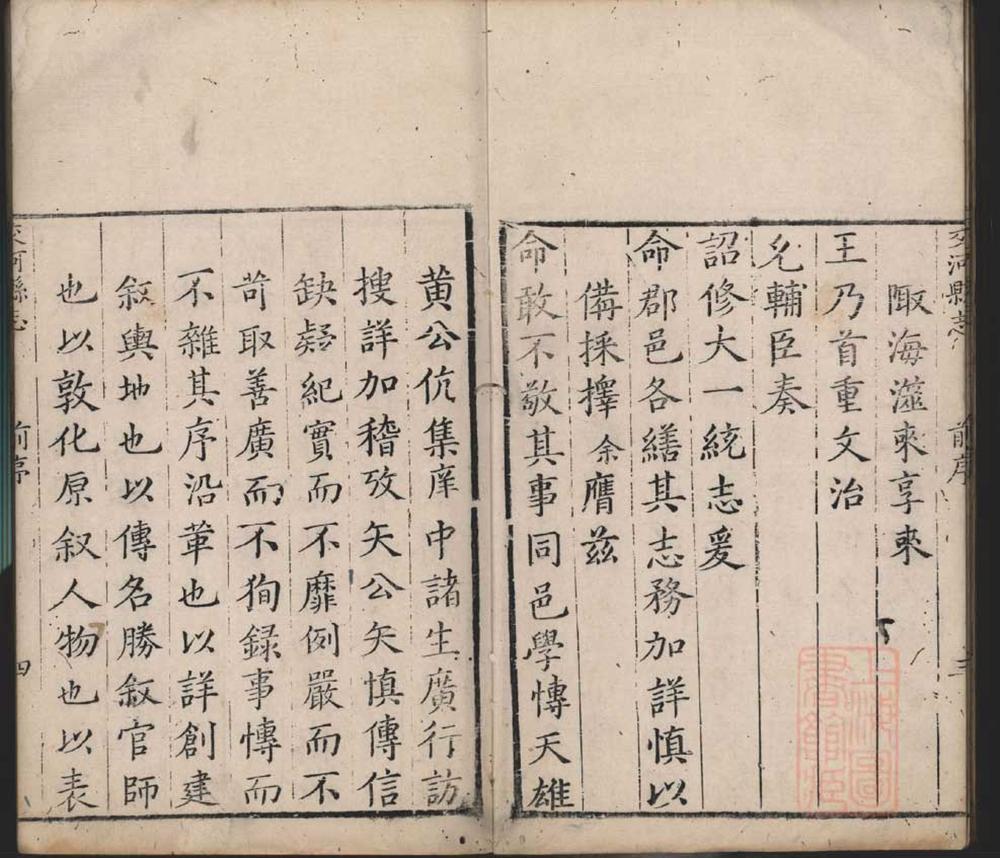 交河縣志 前序 三
陬海澨來享來
王乃首重文治
允輔臣奏
詔修大一統志爰
命郡邑各繕其志務加詳慎以
備採擇余膺兹
命敢不敬其事同邑學愽天雄
黄公伉集庠中諸生廣行訪
搜詳加稽攷矢公矢慎傳信
缺疑紀實而不靡例嚴而不
苛取善廣而不狥録事愽而
不雜其序沿革也以詳創建
叙輿地也以傳名勝叙官師
也以敦化原叙人物也以表
交河縣志 前序 四
上海圖書館藏